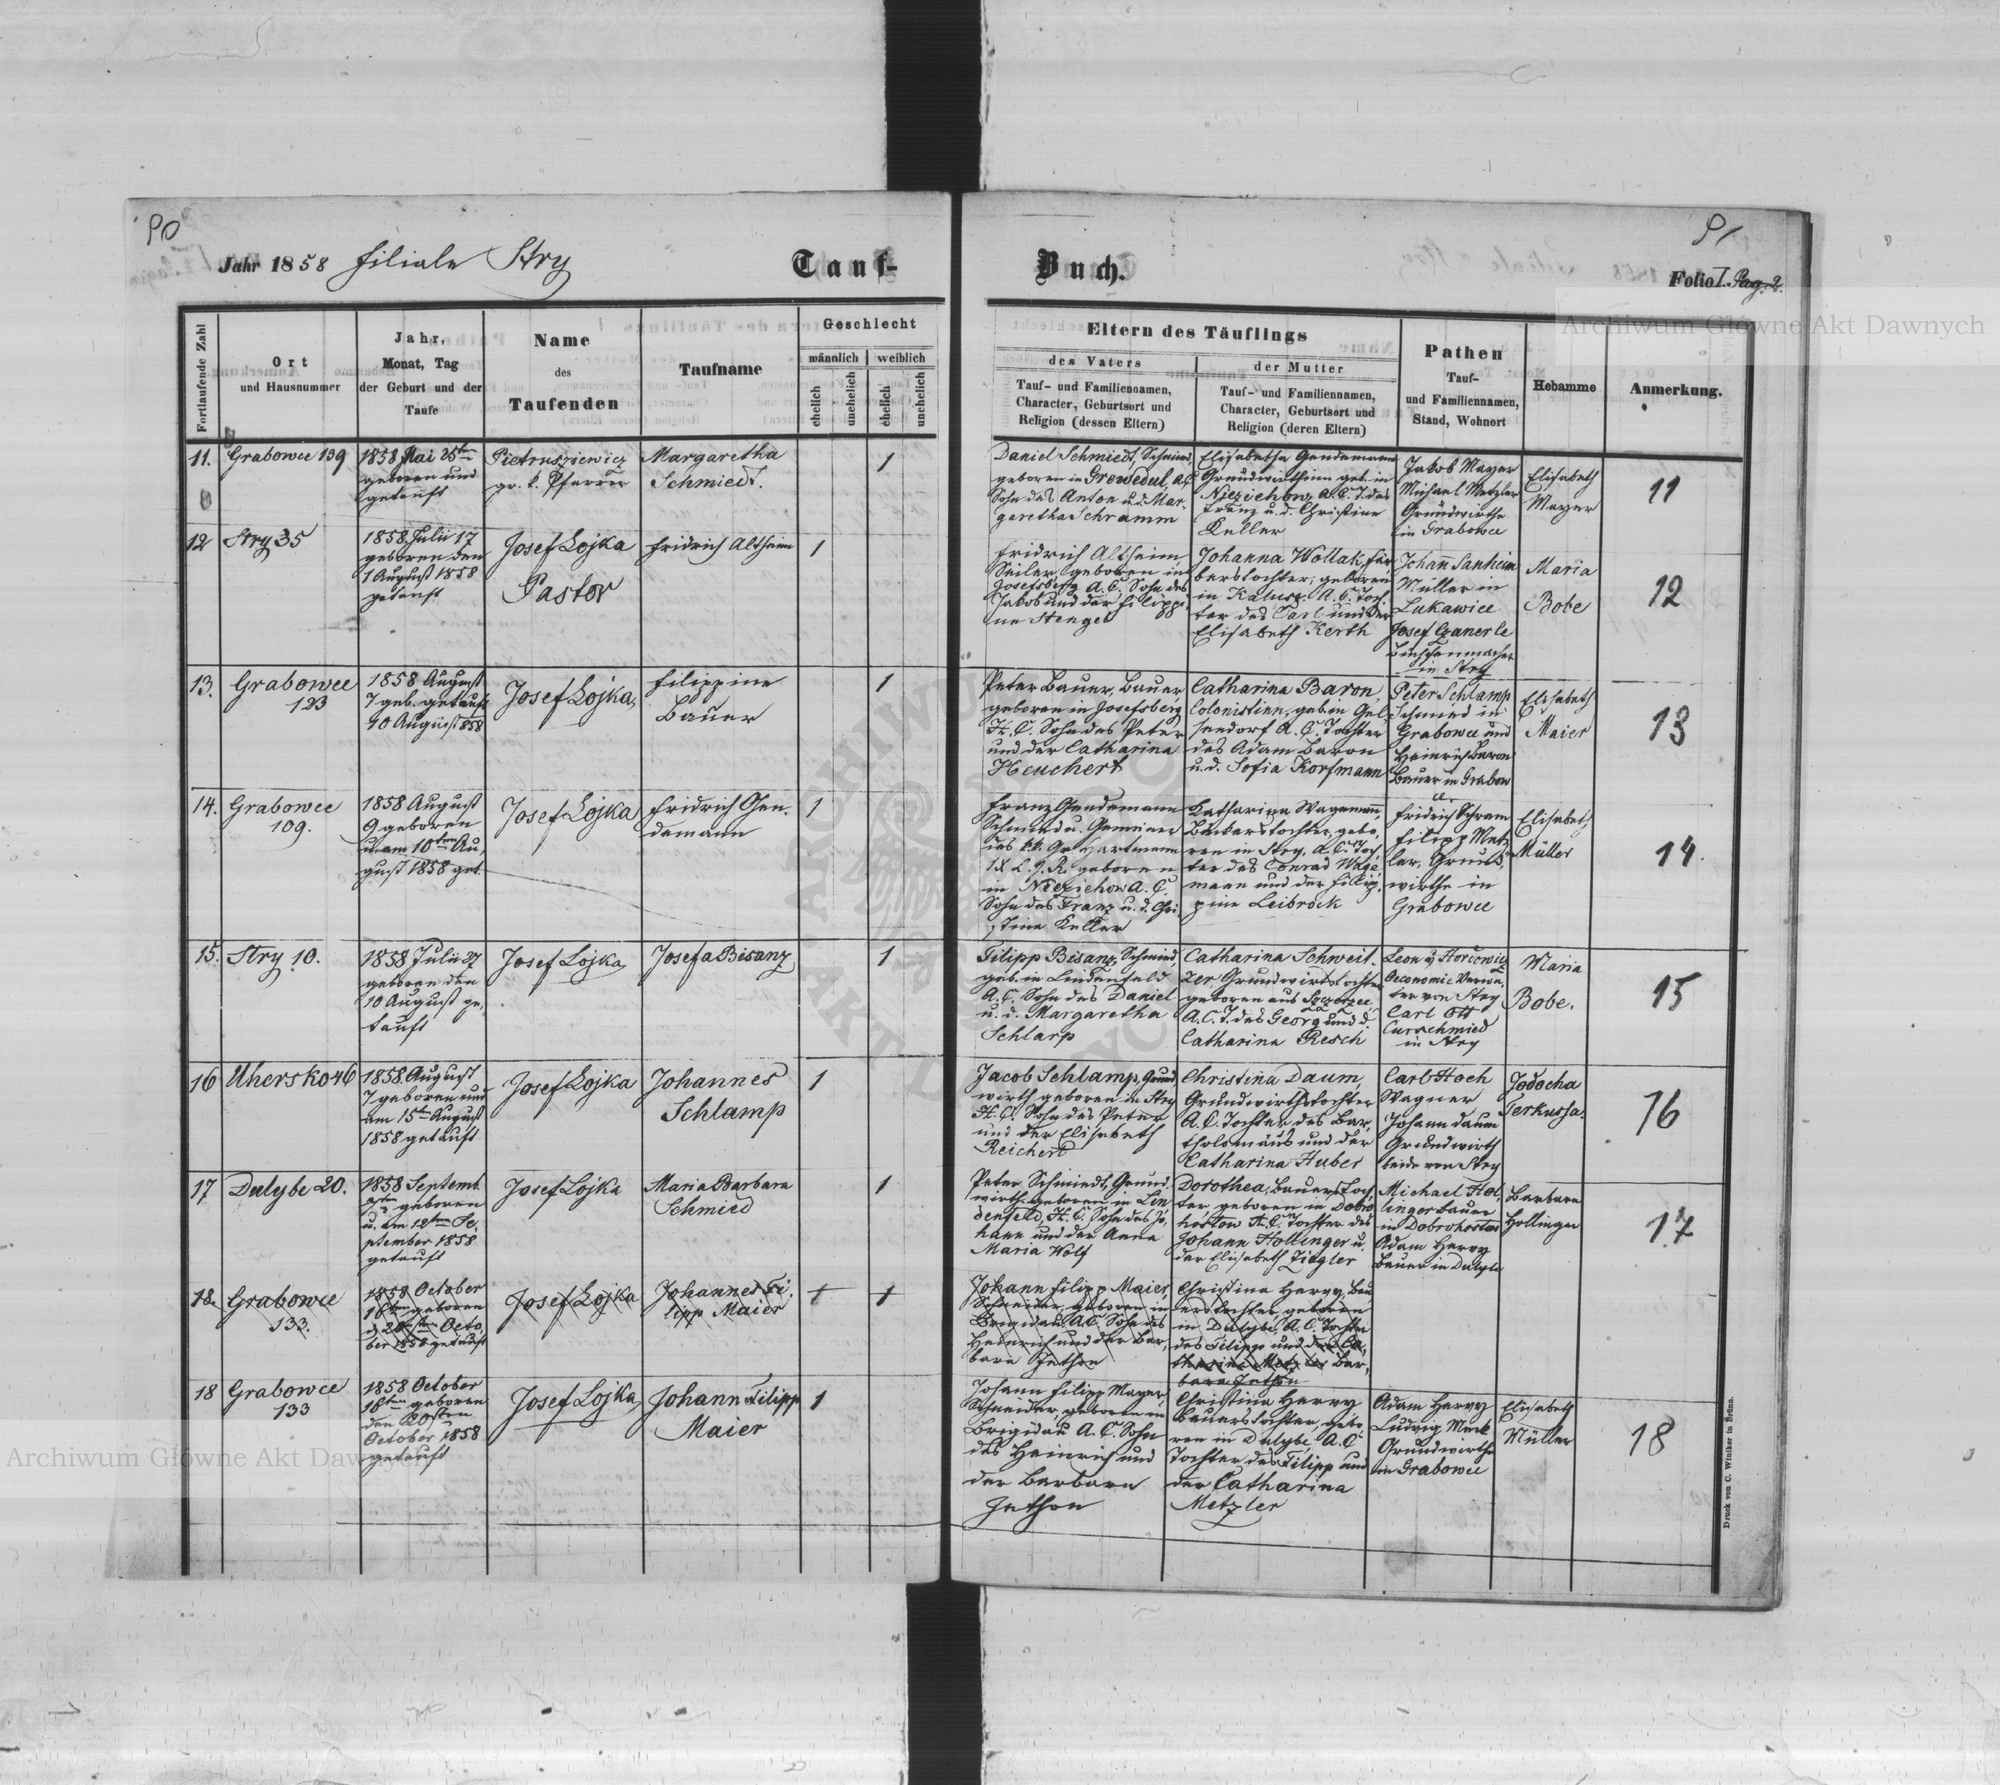 90
91
Jahr 1858 Filiale Stry
Tauf-
Buch.
Folio I. Pag. 2.
Archiwum Główne Akt Dawnych
Fortlaufende Zahl
Ort
und Hausnummer
Jahr,
Monat, Tag
der Geburt und der
Taufe
Name
des
Taufenden
Taufname
Geschlecht
männlich
weiblich
ehelich
unehelich
ehelich
unehelich
Eltern des Täuflings
des Vaters
Tauf- und Familiennamen,
Character, Geburtsort und
Religion (dessen Eltern)
der Mutter
Tauf- und Familiennamen,
Character, Geburtsort und
Religion (deren Eltern)
Pathen
Tauf-
und Familiennamen,
Stand, Wohnort
Hebamme
Anmerkung.
11.
Grabowce 139
1858 Mai 25ten
geboren und
getauft
Pietrusziewicz
gr. k. Pfarrer
Margaretha
Schmiedt.
1
Daniel Schmiedt, Schmied,
geboren in Growedul, A.C.
Sohn des Anton u. d. Mar-
garetha Schramm
Elisabetha Gendemann
Grundwirthinn geb. in
Niezichow A.C. T. des
Franz u. d. Christine
Keller
Jakob Mayer
Michael Metzler
Grundwirthe
in Grabowce
Elisabeth
Mayer
11
12
Stry 35
1858 Julii 17
geboren den
1 August 1858
getauft
Josef Lojka
Pastor
Fridrich Altheim
1
Fridrich Altheim,
Seiler, geboren in
Josefsberg A.C. Sohn des
Jakob und der Filippi-
ne Stengel
Johanna Wollak, Fär-
berstochter, geboren
in Kalusz. A.C. Toch-
ter des Carl und der
Elisabeth Kerth
Johann Sanheim
Müller in
Lukawice
Josef Czanerle
Büchsenmacher
in Stry
Maria
Bobe
12
13.
Grabowce
123
1858 August
7 geb. getauft
10 August 1858
Josef Lojka
Filippine
Bauer
1
Peter Bauer, Bauer
geboren in Josefsberg
H.C. Sohn des Peter
und der Catharina
Heuchert
Catharina Baron,
Colonistinn, geb. in Gel-
sendorf A.C. Tochter
des Adam Baron
u. d. Sofia Korfmann
Peter Schlamp
Schmied in
Grabowce und
Heinrich Baron
Bauer in Grabow
ce.
Elisabeth
Maier
13
14.
Grabowce
109.
1858 August
9 geboren
u. am 10ten Au-
gust 1858 get.
Josef Lojka
Fridrich Gen-
demann
1
Franz Gendemann
Schmied u. Gemeiner
des k.k. Gr. Hartmann
IX L. J. R. geboren
in Niezichow A.C.
Sohn des Franz u. d. Chri-
stine Keller
Katharina Wagemann,
Bäckerstochter, gebo-
ren in Stry, A.C. Toch-
ter des Conrad Wage-
mann und der Filip-
pine Leibrock
Fridrich Schram
Filipp Metz-
ler, Grund-
wirthe in
Grabowce
Elisabeth
Müller
14.
15.
Stry 10.
1858 Julii 27
geboren den
10 August ge-
tauft
Josef Lojka
Josefa Bisanz
1
Filipp Bisanz, Schmied,
geb. in Lindenfeld
A.C. Sohn des Daniel
u. d. Margaretha
Schlarp
Catharina Schweit-
zer, Grundwirthstochter
geboren aus
A.C. T. des Georg und d.
Catharina Resch
Leon
Oeconomie Verwal-
ter von Stry
Carl Ott
Curschmied
in Stry
Maria
Bobe.
15
16
Uhersko 46
1858 August
7 geboren und
am 15ten August
1858 getauft
Josef Lojka
Johannes
Schlamp
1
Jacob Schlamp, Grund-
wirth geboren in Stry
H.C. Sohn des Peter
und der Elisabeth
Reichert
Christina Daum,
Grundwirthstochter
A.C. Tochter des Bar-
tholomäus und der
Catharina Huber
Carl Hoch
Wagner
Johann Daum
Grundwirth
beide von Stry
Jodocha
Terkussa.
16
17
Dulybe 20.
1858 Septemb.
7ten geboren
u. am 12ten Se-
ptember 1858
getauft
Josef Lojka
Maria Barbara
Schmied
1
Peter Schmiedt, Grund-
wirth geboren in Lin-
denfeld, H.C. Sohn des Jo-
hann und der Anna
Maria Wolf
Dorothea, Bauerstoch-
ter geboren in Dobro-
hostow A.C. Tochter des
Johann Hollinger u.
der Elisabeth Ziegler
Michael Hol-
linger Bauer
in Dobrohostow
Adam Hervy
Bauer in Dulybe
Barbara
Hollinger
17
18.
Grabowce
133.
1858 October
18ten geboren
d. 20sten Octo-
ber 1858 getauft
Josef Lojka
Johannes Fi-
lipp Maier
1
1
Johann Filipp Maier,
Schneider, geboren in
Brigidau A.C. Sohn des
Heinrich und der Bar-
bara Jethon
Christina Hervy, Bau-
erstochter geboren
in Dulybe, A.C. Tochter
des Filipp und der Ca-
tharina Metzler Bar-
bara Jethon
18
Grabowce
133
1858 October
18ten geboren
den 20sten
October 1858
getauft
Josef Lojka
Johann Filipp
Maier
1
Johann Filipp Mayer
Schneider, geboren in
Brigidau A.C. Sohn
des Heinrich und
der Barbara
Jethon
Christina Hervy
Bauerstochter, gebo-
ren in Dulybe, A.C.
Tochter des Filipp und
der Catharina
Metzler
Adam Hervy
Ludwig Mock
Grundwirthe
in Grabowce
Elisabeth
Müller
18
Archiwum Główne Akt Dawnych
Druck von C. Winiker in Brünn.